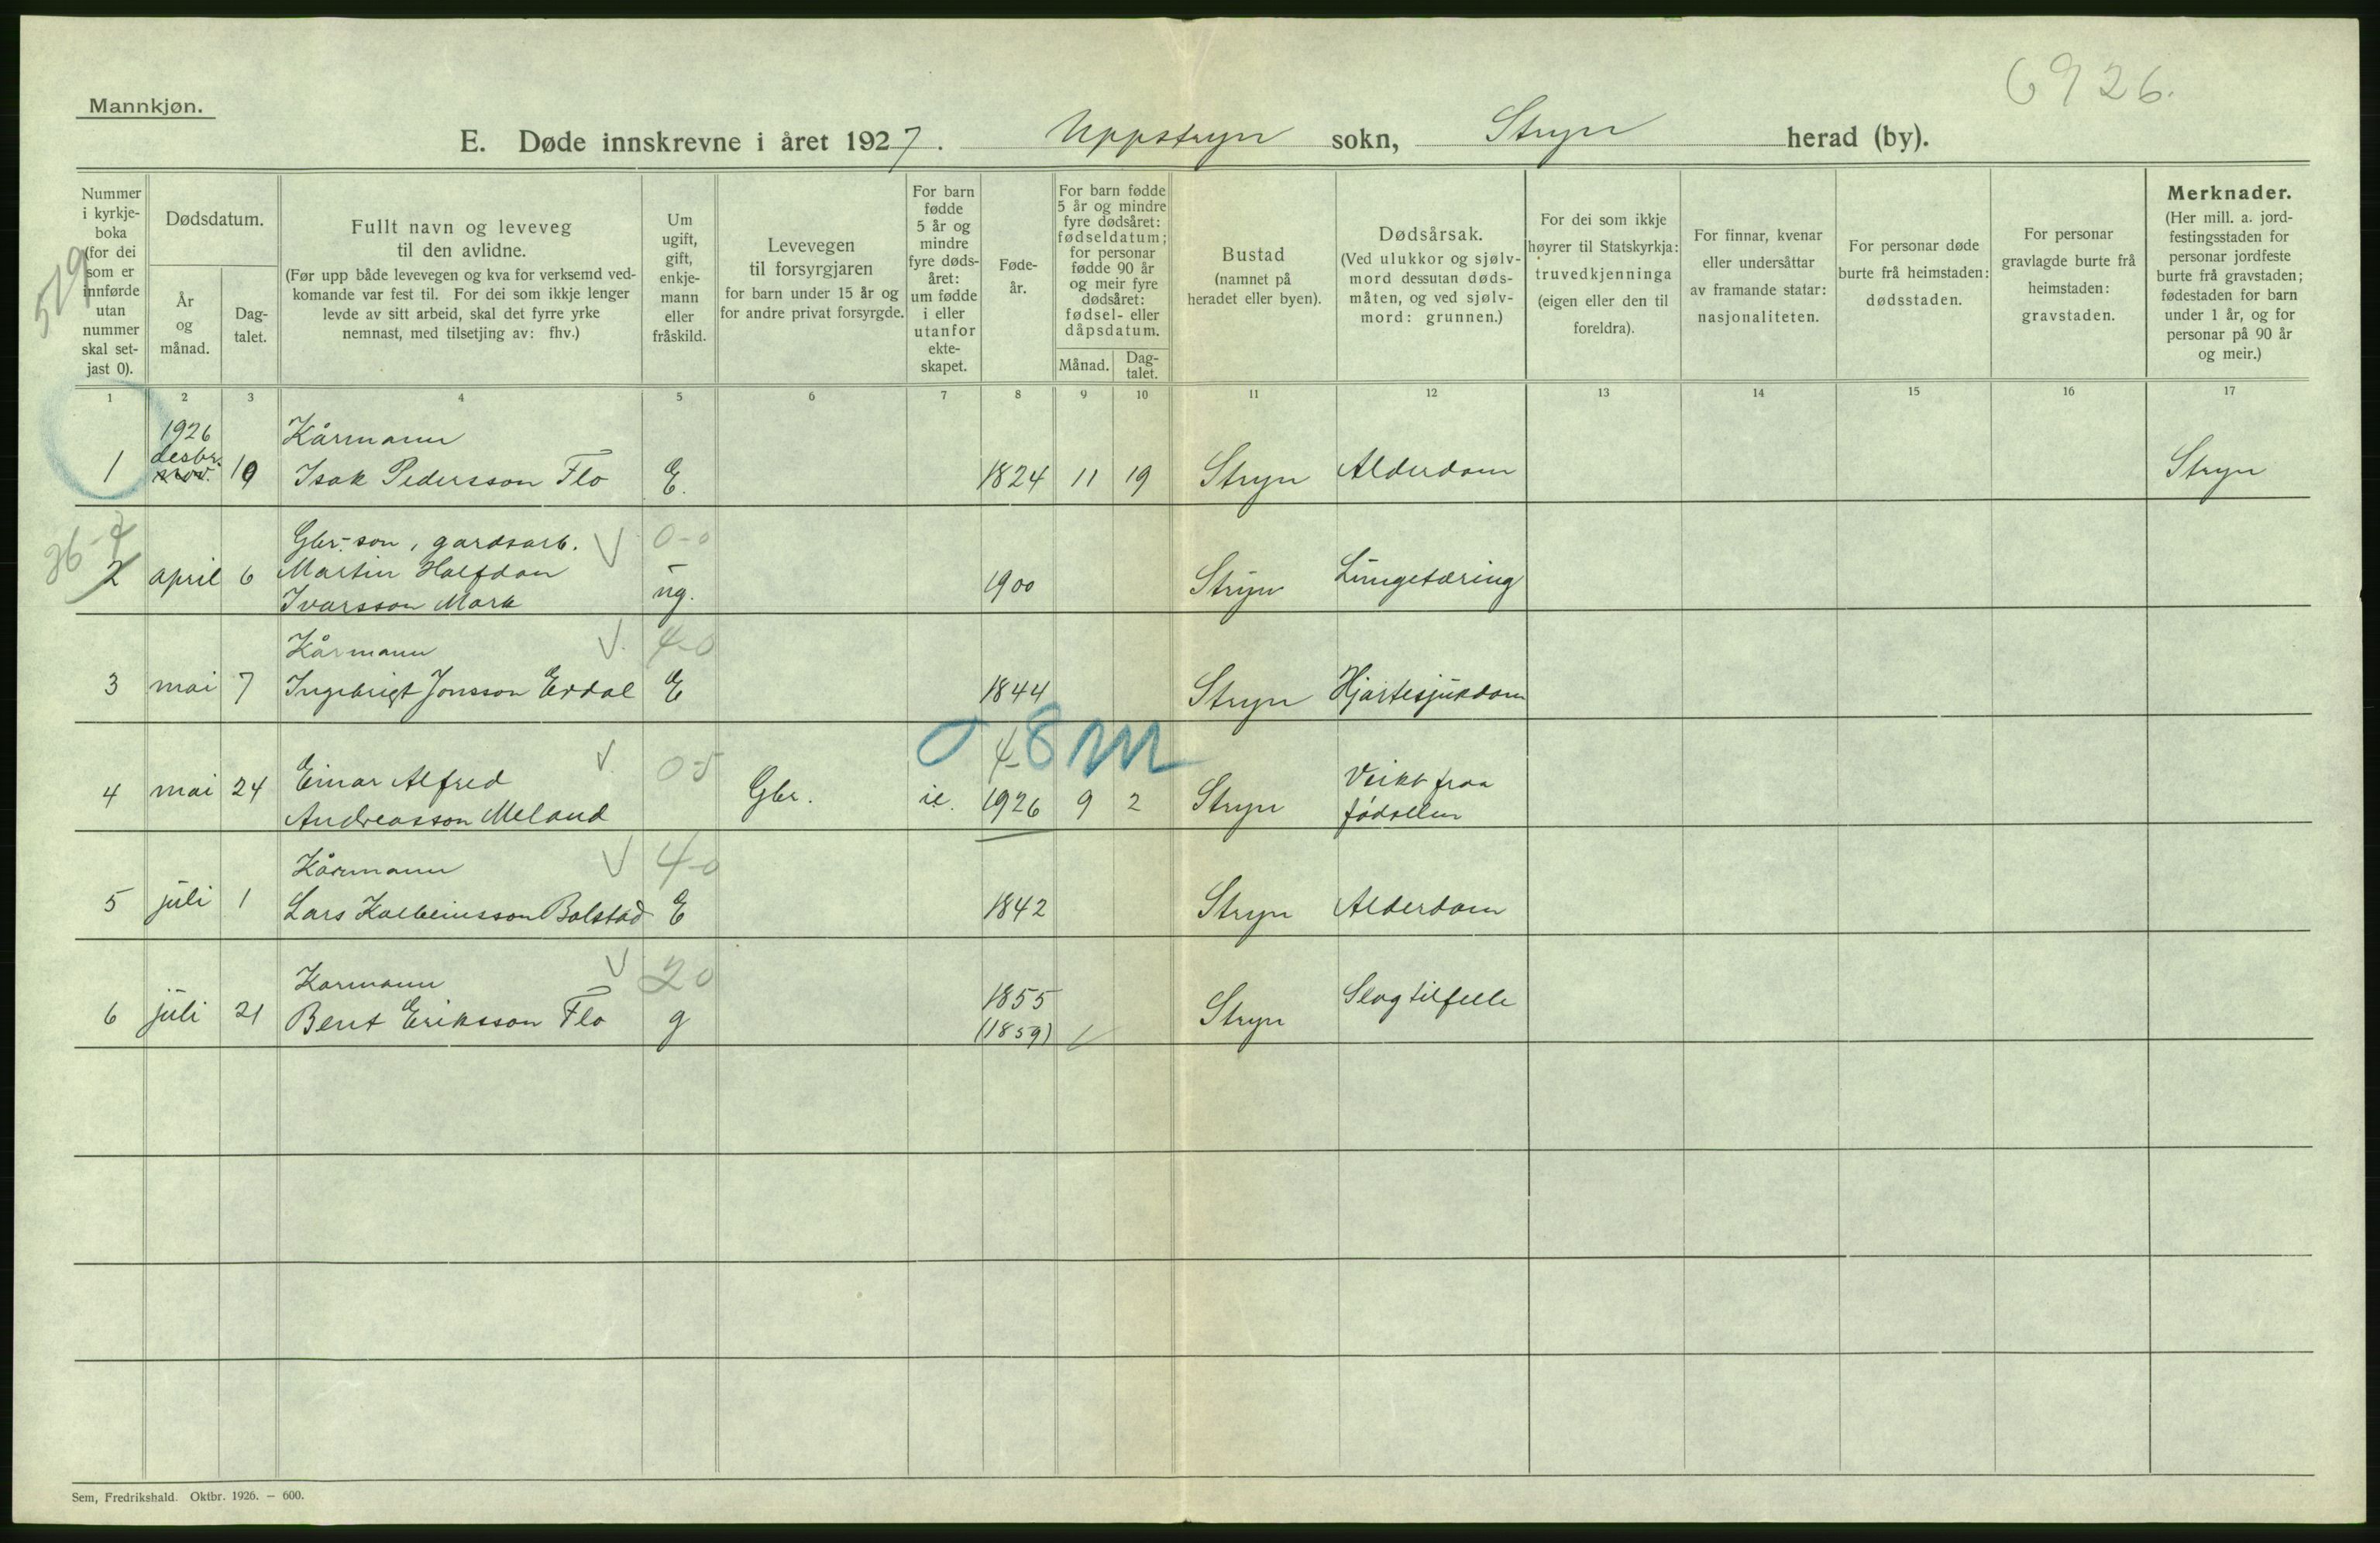 6926.
Mannkjøn.
E. Døde innskrevne i året 1927. Uppstryn sokn, Stryn herad (by).
579
Nummer i kyrkje-boka (for dei som er innførde utan nummer skal set-jast 0).
Dødsdatum.
År og månad.
Dag-talet.
Fullt navn og leveveg til den avlidne.
(Før upp både levevegen og kva for verksemd ved-komande var fest til. For dei som ikkje lenger levde av sitt arbeid, skal det fyrre yrke nemnast, med tilsetjing av: fhv.)
Um ugift, gift, enkje-mann eller fråskild.
Levevegen til forsyrgjaren for barn under 15 år og for andre privat forsyrgde.
For barn fødde 5 år og mindre fyre døds-året: um fødde i eller utanfor ekte-skapet.
Føde-år.
For barn fødde 5 år og mindre fyre dødsåret: fødseldatum; for personar fødde 90 år og meir fyre dødsåret: fødsel- eller dåpsdatum.
Månad.
Dag-talet.
Bustad
(namnet på heradet eller byen).
Dødsårsak.
(Ved ulukkor og sjølv-mord dessutan døds-måten, og ved sjølv-mord: grunnen.)
For dei som ikkje høyrer til Statskyrkja: truvedkjenninga (eigen eller den til foreldra).
For finnar, kvenar eller undersåttar av framande statar: nasjonaliteten.
For personar døde burte frå heimstaden: dødsstaden.
For personar gravlagde burte frå heimstaden: gravstaden.
Merknader.
(Her mill. a. jord-festingsstaden for personar jordfeste burte frå gravstaden; fødestaden for barn under 1 år, og for personar på 90 år og meir.)
1 2 3 4 5 6 7 8 9 10 11 12 13 14 15 16 17
1926 Kårmann
desbr.
1 nov. 19 Isak Pedersson Flo E. 1824 11 19 Stryn Alderdom Stryn
36-4 Gbr.-son, gardsarb. V 0-0
2 april 6 Martin Halfdan ug. 1900 Stryn Lungetæring
Ivarsson Mark
Kårmann V. 4-0
3 mai 7 Ingebrigt Jonsson Erdal E 1844 Stryn Hjartesjukdom
0 4-8 m
4 mai 24 Einar Alfred V. 05 Gbr. ie. 1926 9 2 Stryn Veikt fraa
Andreasson Meland fødsellen
Kårmann V 4-0
5 juli 1 Lars Kolbeinsson Bolstad E 1842 Stryn Alderdom
Karmann V 20
6 juli 21 Bent Eriksson Flo g 1855 Stryn Slagtilfelle
(1859)
Sem, Fredrikshald. Oktbr. 1926. — 600.